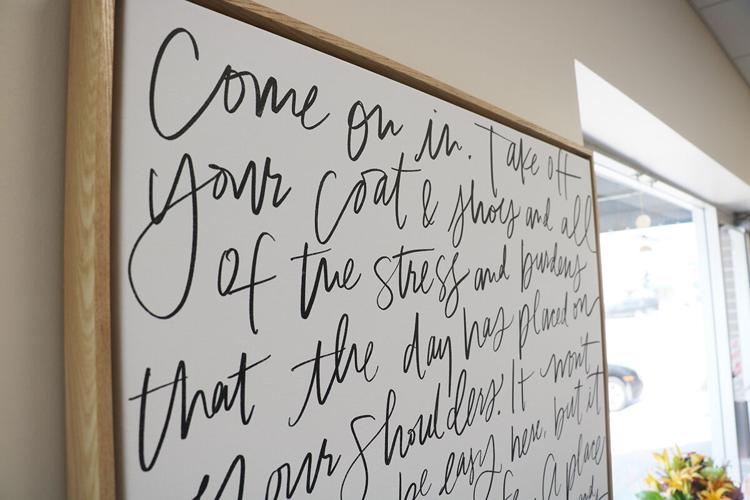 Come on in. Take off
your coat & shoes and all
of the stress and burdens
that the day has placed on
your shoulders. It won't
be easy here, but it
A place
and